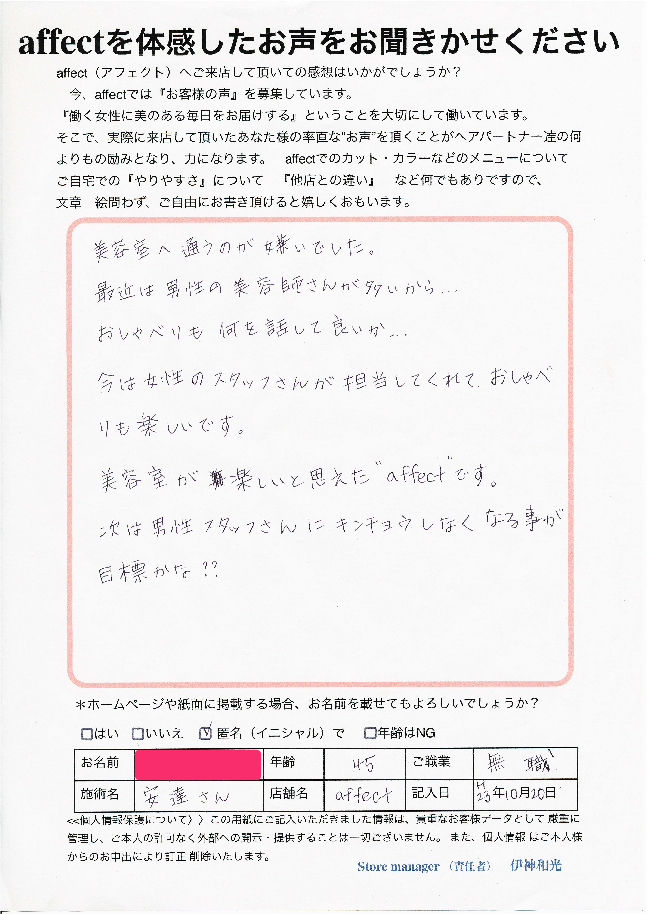 affectを体感したお声をお聞きかせください
affect（アフェクト）へご来店して頂いての感想はいかがでしょうか？
今、affectでは『お客様の声』を募集しています。
『働く女性に美のある毎日をお届けする』ということを大切にして働いています。
そこで、実際に来店して頂いたあなた様の率直な"お声"を頂くことがヘアパートナー達の何
よりもの励みとなり、力になります。 affectでのカット・カラーなどのメニューについて
ご自宅での『やりやすさ』について 『他店との違い』 など何でもありですので、
文章 絵問わず、ご自由にお書き頂けると嬉しくおもいます。
美容室へ通うのが嫌いでした。
最近は男性の美容師さんが多いから…
おしゃべりも何を話して良いか…
今は女性のスタッフさんが担当してくれて、おしゃべ
りも楽しいです。
美容室が楽しいと思えた"affect"です。
次は男性スタッフさんにキンチョウしなくなる事が
目標かな??
＊ホームページや紙面に掲載する場合、お名前を載せてもよろしいでしょうか？
□はい □いいえ ☑匿名（イニシャル）で □年齢はNG
お名前 年齢 45 ご職業 無職
施術名 安達さん 店舗名 affect 記入日 H23年10月20日
<<個人情報保護について〉〉この用紙にご記入いただきました情報は、貴重なお客様データとして厳重に
管理し、ご本人の許可なく外部への開示・提供することは一切ございません。また、個人情報はご本人様
からのお申出により訂正 削除いたします。
Store manager （責任者） 伊神和光